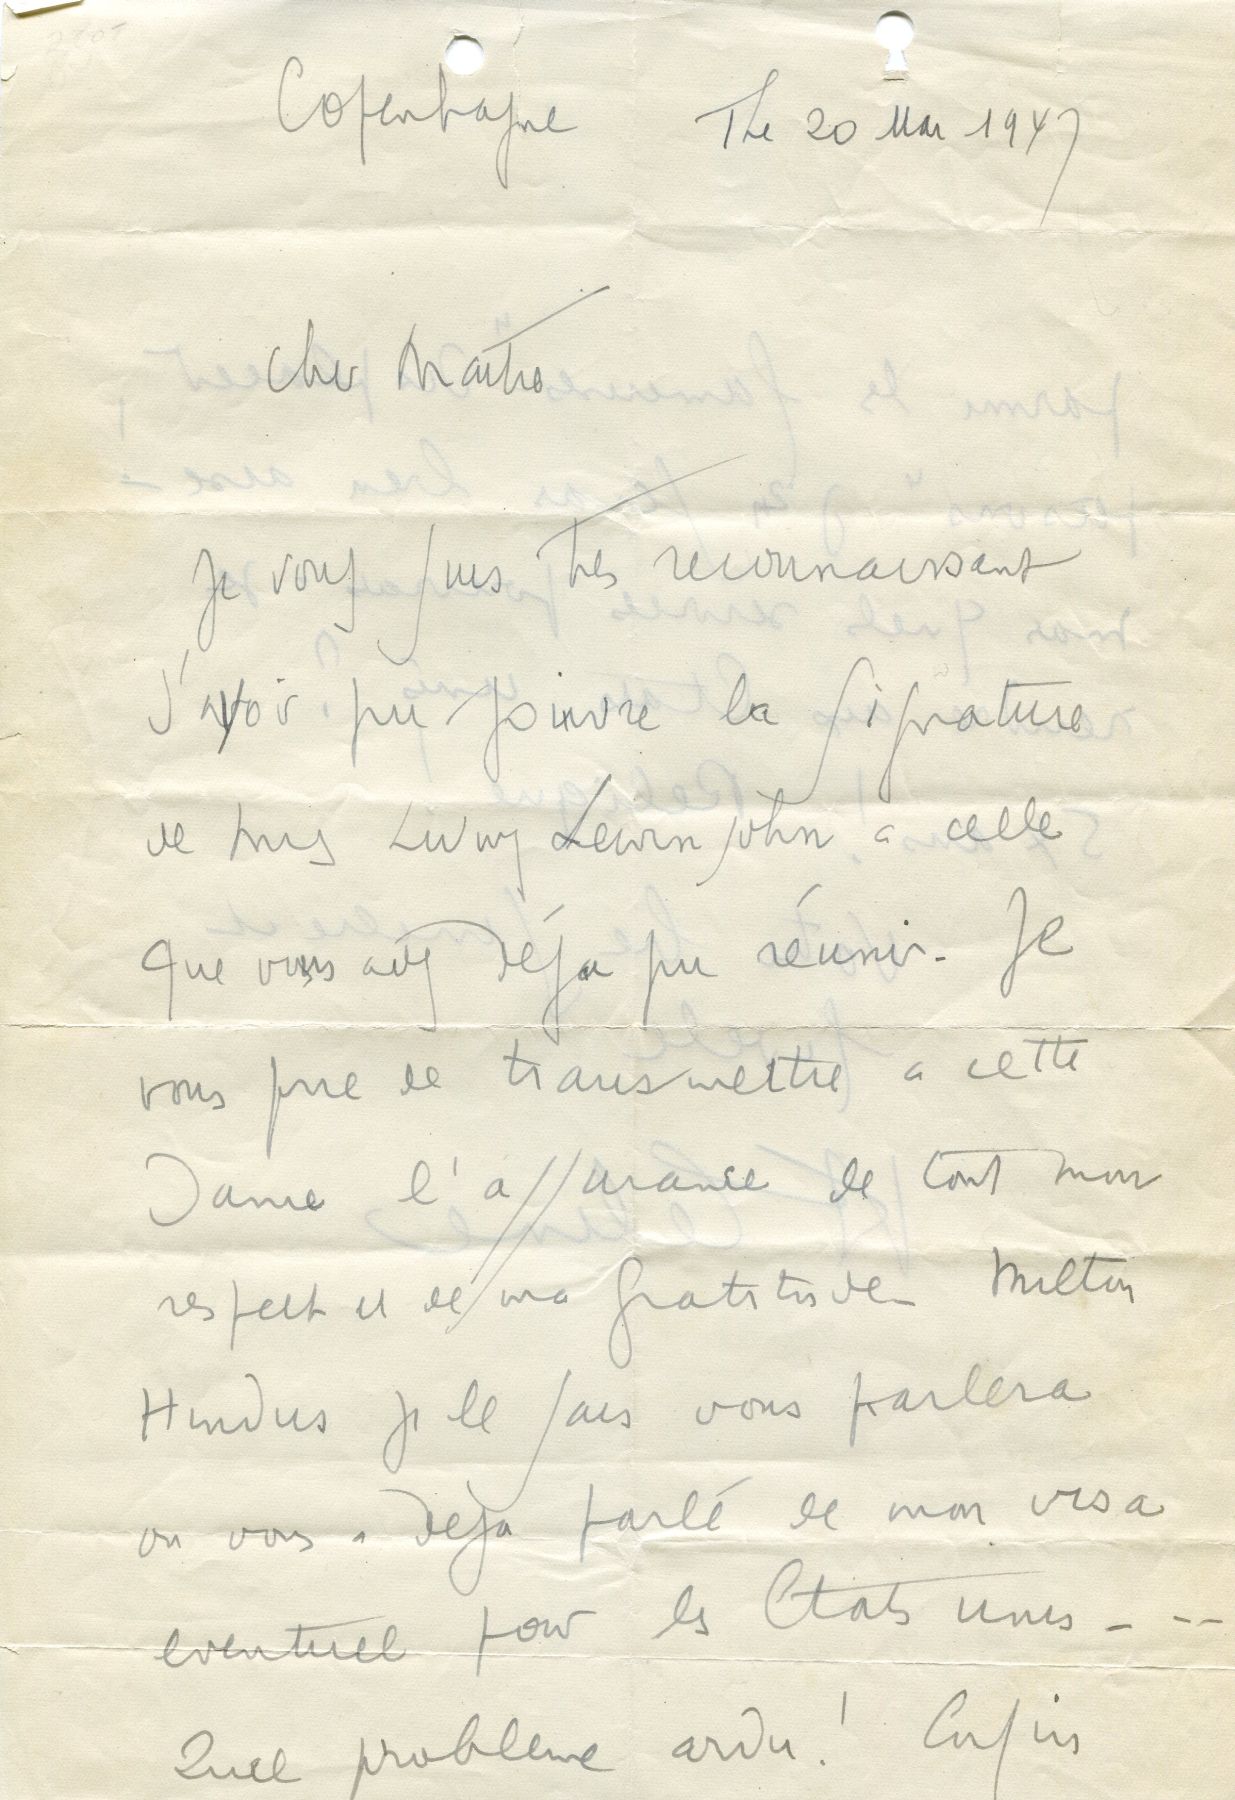 Copenhague The 20 Mar 1947
Cher Maitre
Je vous suis très reconnaissant
d'avoir pu joindre la signature
de Miss Lewinsohn a celle
que vous avez déja pu réunir - Je
vous prie de transmettre a cette
Dame l'assurance de tout mon
respect et de ma gratitude - Milton
Hindus je le sais vous parlera
ou vous a déja parlé de mon visa
eventuel pour les Etats Unis - --
Quel probleme ardu ! Enfin